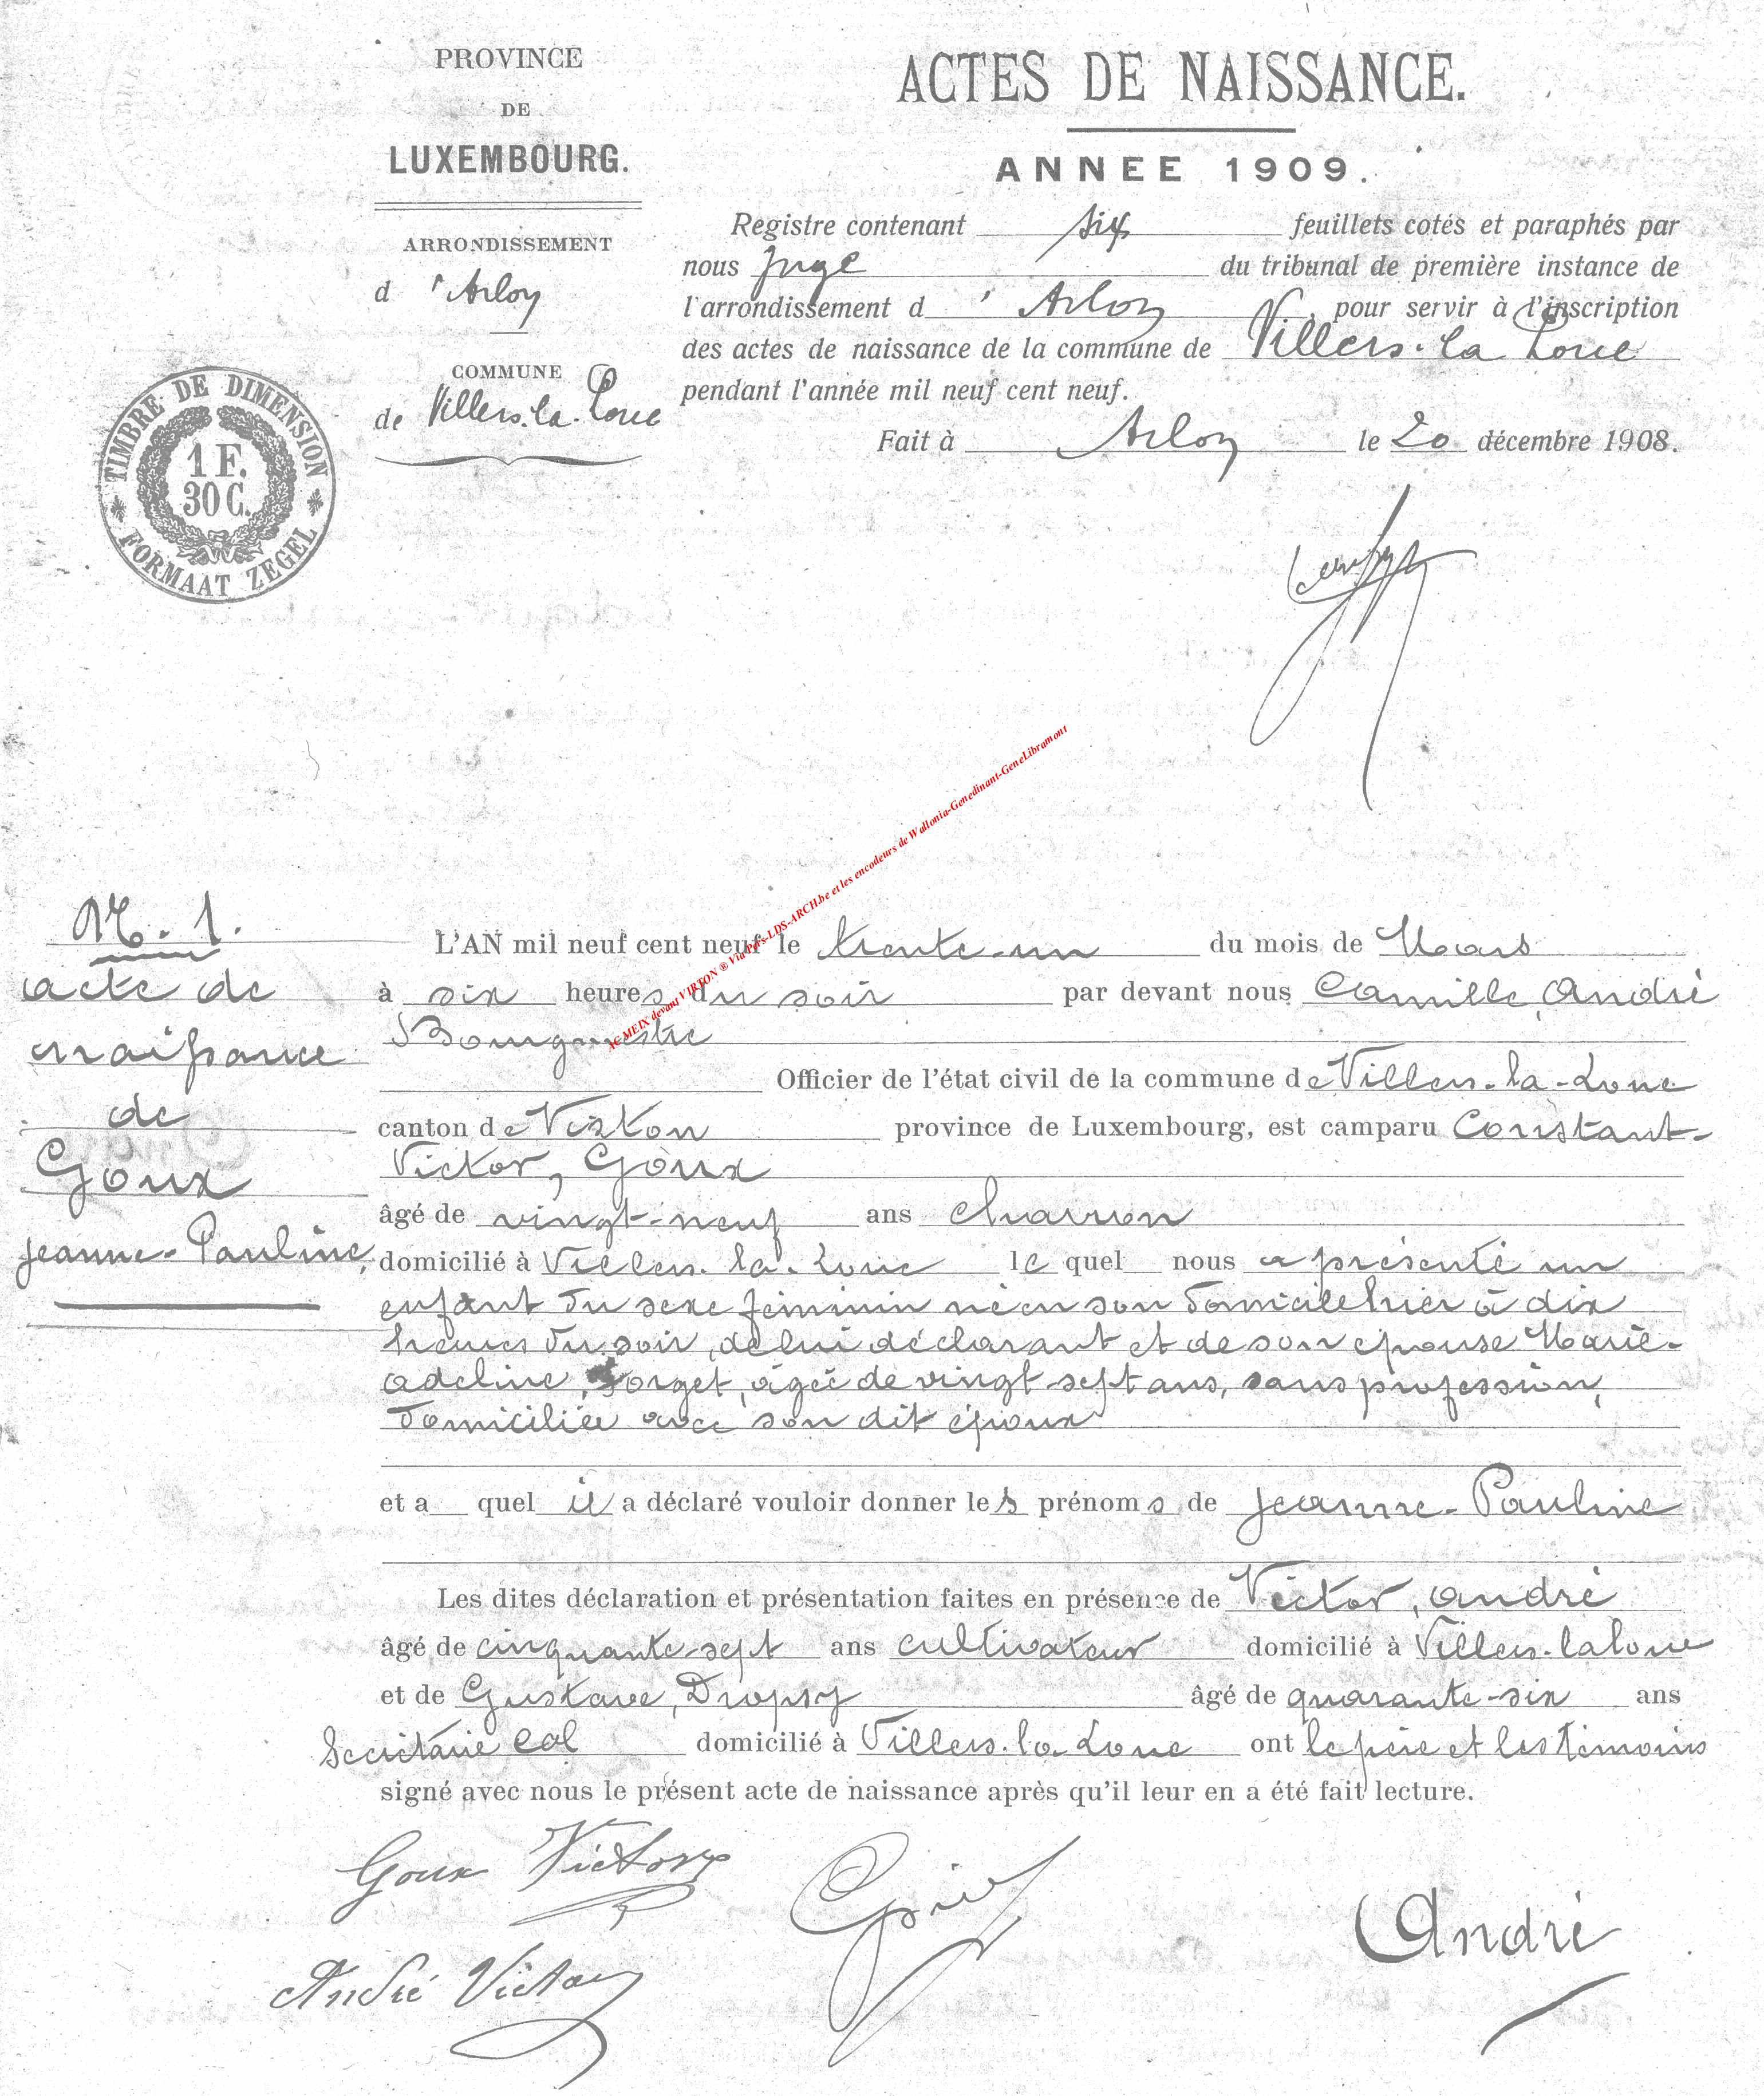 PROVINCE
DE
LUXEMBOURG.
ARRONDISSEMENT
d 'Arlon
COMMUNE
de Villers-la-Loue
TIMBRE DE DIMENSION
1 F.
30 C.
FORMAAT ZEGEL
ACTES DE NAISSANCE.
ANNEE 1909.
Registre contenant six feuillets cotés et paraphés par
nous Juge du tribunal de première instance de
l'arrondissement d' Arlon, pour servir à l'inscription
des actes de naissance de la commune de Villers-la Loue
pendant l'année mil neuf cent neuf.
Fait à Arlon le 20 décembre 1908.
AC MEIX devant VIRTON ® Via Pers-LDS-ARCH.be et les encodeurs de Wallonia-Genedinant-GeneLibramont
N. 1.
acte de
naissance
de
Goux
Jeanne-Pauline,
L'AN mil neuf cent neuf le trente-un du mois de Mars
à six heures du soir par devant nous Camille, André
Bourgmestre
Officier de l'état civil de la commune de Villers-la-Loue
canton de Virton province de Luxembourg, est camparu Constant-
Victor, Goux
âgé de vingt-neuf ans charron
domicilié à Villers-la-Loue le quel nous a présenté un
enfant du sexe féminin né en son domicile hier à dix
heures du soir, de lui déclarant et de son épouse Marie-
Adeline, Forget, âgée de vingt sept ans, sans profession,
domiciliée avec son dit époux
et a quel il a déclaré vouloir donner les prénoms de Jeanne-Pauline
Les dites déclaration et présentation faites en présence de Victor, André
âgé de cinquante-sept ans cultivateur domicilié à Villers-la loue
et de Gustave, Dropsy âgé de quarante-six ans
Secrétaire Cal domicilié à Villers-la-Loue ont le père et les témoins
signé avec nous le présent acte de naissance après qu'il leur en a été fait lecture.
Goux Victor
André
André Victor